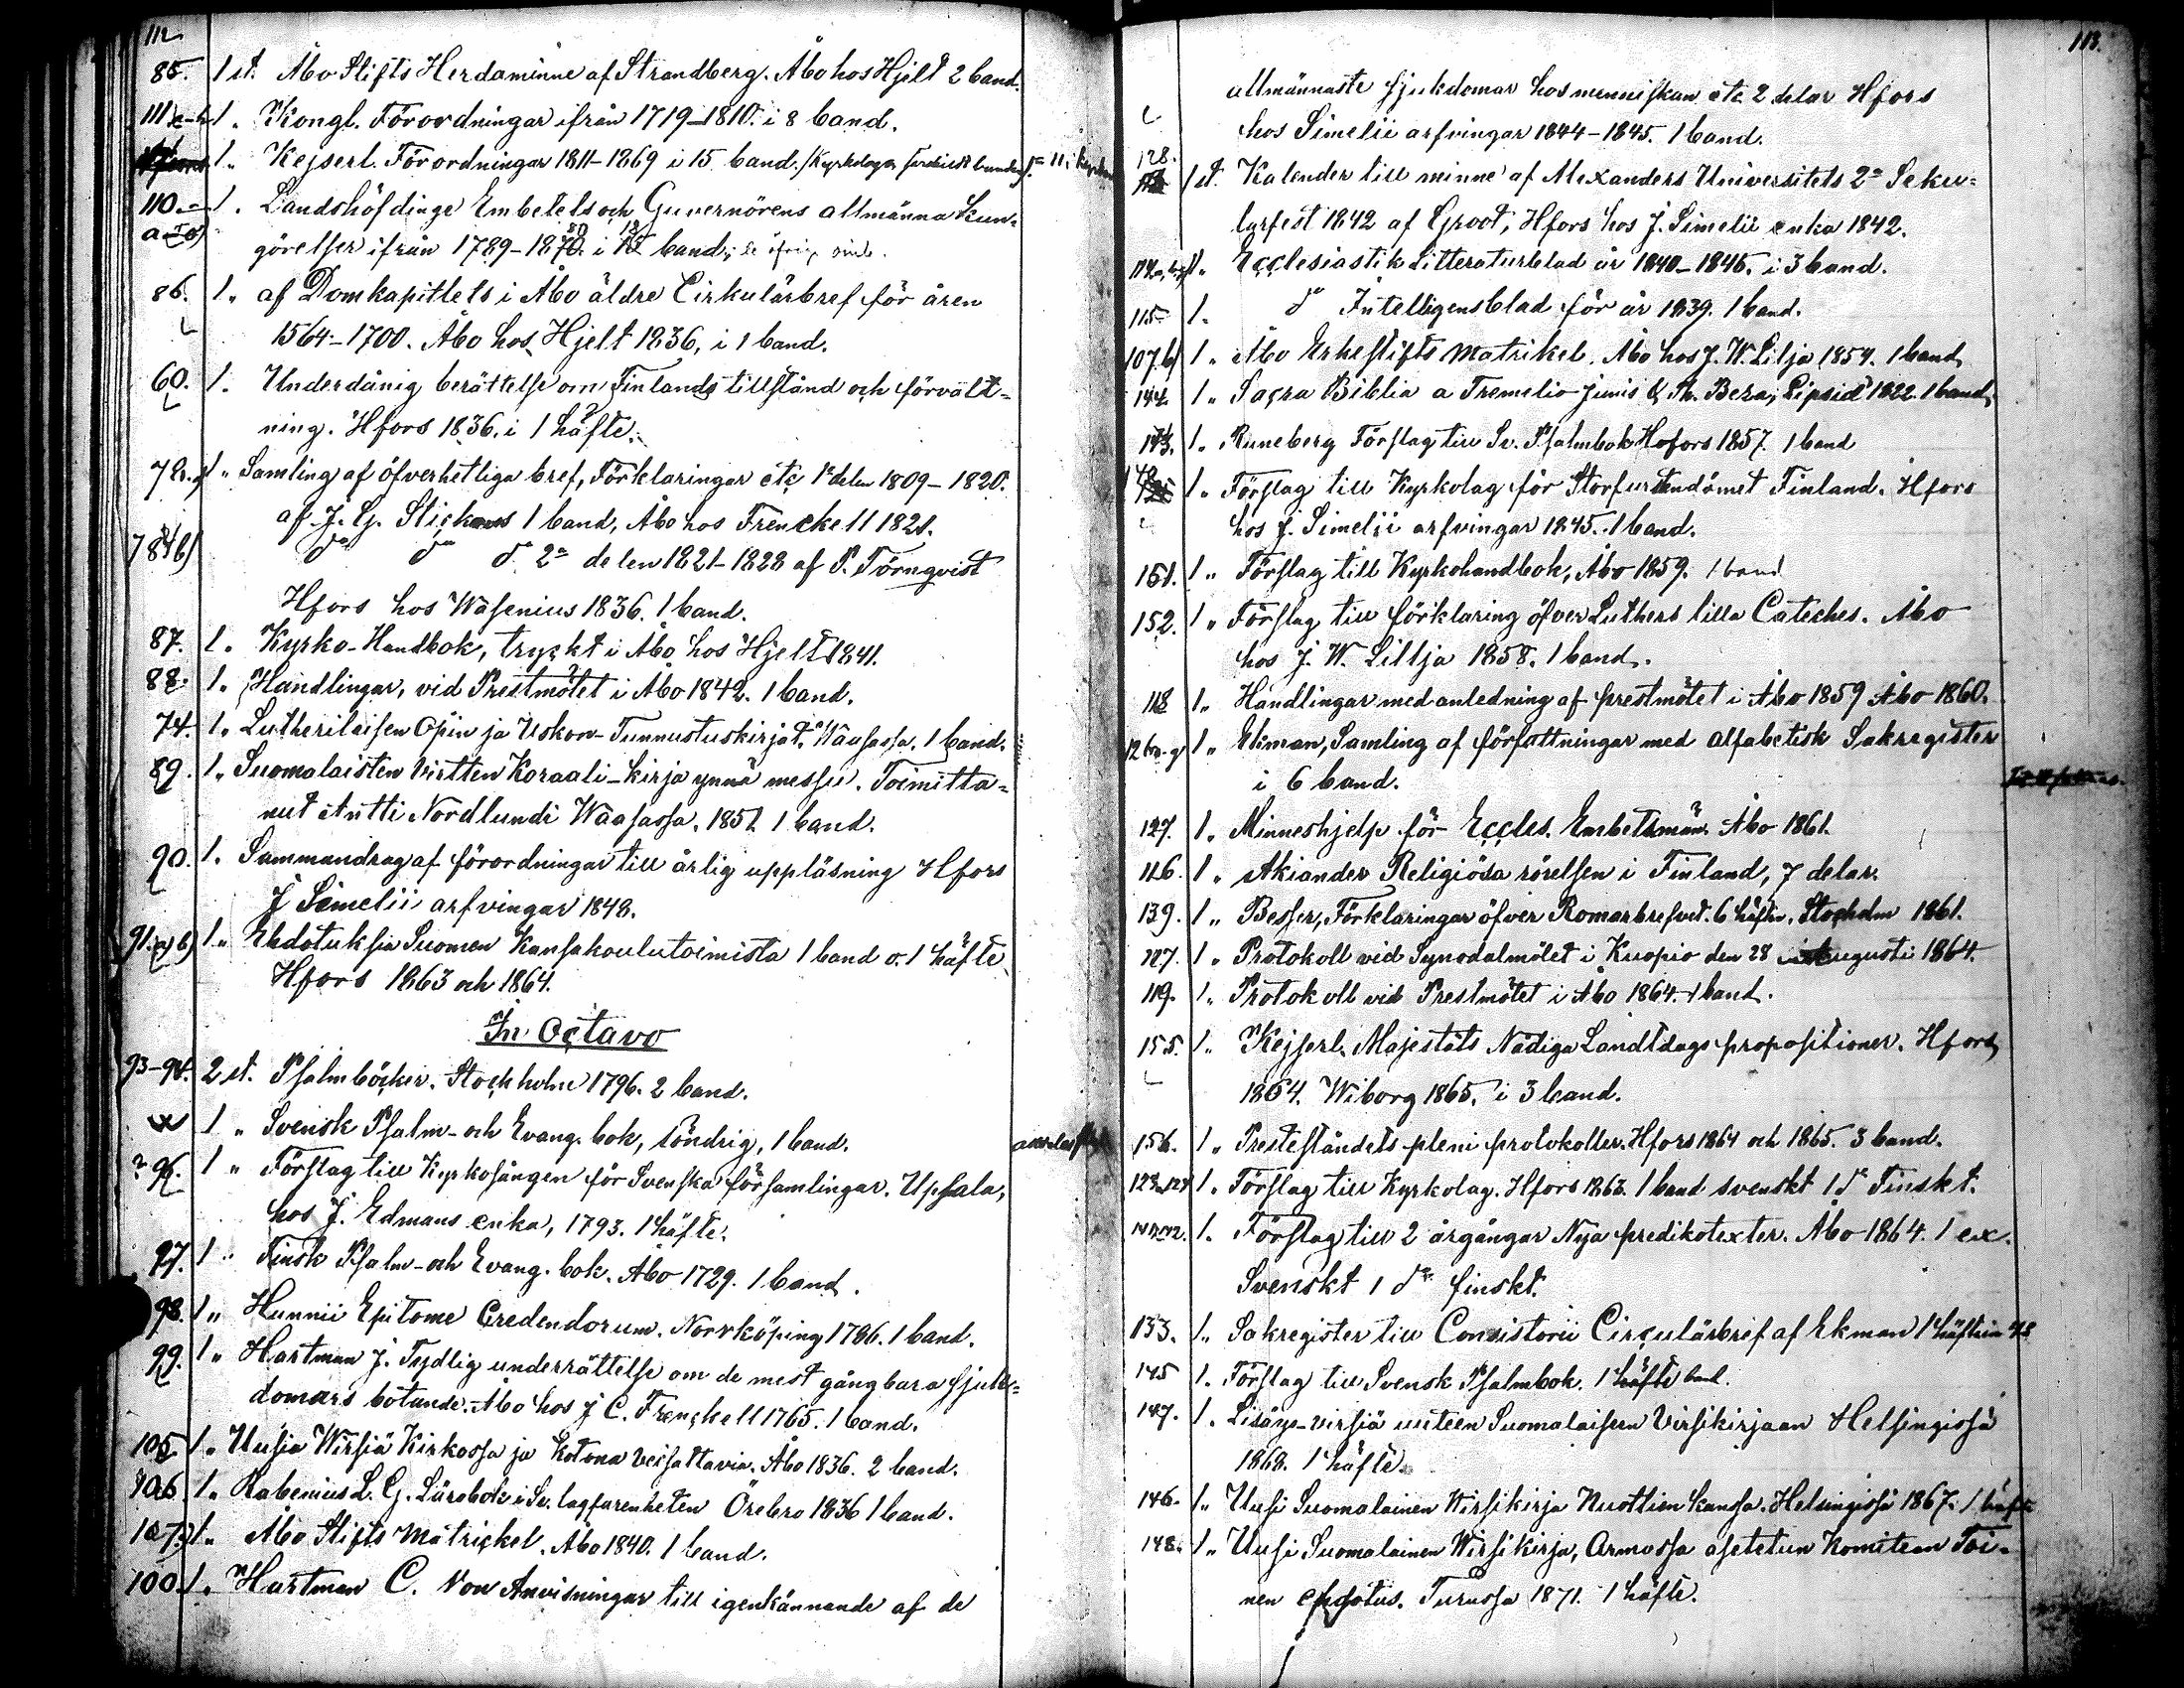 112
85. 1 st. Åbo Stifts Herdaminne af Strandberg. Åbo hos Hjelt 2 band.
111 1 " Kongl. Förordningar ifrån 1719–1810. i 8 band.
1 " Kejserl. Förordningar 1811–1869 i 15 band.
110. 1 " Landshöfdinge Embetets och Guvernörens allmänna Kun-
görelser ifrån 1789–1870. i band;
86. 1 " af Domkapitlets i Åbo äldre Cirkulärbref för åren
1564–1700. Åbo hos Hjelt 1836, i 1 band.
60. 1 " Underdånig berättelse om Finlands tillstånd och förvalt-
ning. Hfors 1836. i 1 häfte.
78. a) " Samling af öfverhetliga bref, Förklaringar etc 1a delen 1809–1820.
af J. G. Stickaeus 1 band, Åbo hos Frenckell 1821.
78 b) do do do 2a delen 1821–1828 af P. Törnqvist
Hfors hos Wasenius 1836. 1 band.
87. 1 " Kyrko-Handbok, tryckt i Åbo hos Hjelt 1841.
88. 1 " Handlingar, vid Prestmötet i Åbo 1842. 1 band.
74. 1 " Lutherilaisen Opin ja Uskon-Tunnustuskirjat. Waasassa. 1 band.
89. 1 " Suomalaisten Virtten Koraali-kirja ynnä messu. Toimitta-
nut Antti Nordlundi Waasassa. 1851 1 band.
90. 1 " Sammandrag af förordningar till årlig uppläsning Hfors
J Simelii arfvingar 1848.
91. a) b) 1 " Ehdotuksia Suomen Kansakoulutoimista 1 band o. 1 häfte
Hfors 1863 och 1864.
In Octavo
93–94. 2 st. Psalmböcker. Stockholm 1796. 2 band.
1 " Svensk Psalm- och Evang. bok, söndrig, 1 band.
? 96. 1 " Förslag till Kyrkosången för Svenska församlingar. Upsala,
hos J. Edmans enka, 1793. 1 häfte.
97. 1 " Finsk Psalm- och Evang. bok. Åbo 1729. 1 band.
98. 1 " Hunnii Epitome Credendorum. Norrköping 1786. 1 band.
99. 1 " Hartman J. Tydlig underrättelse om de mest gångbara sjuk-
domars botande. Åbo hos J C. Frenckell 1765. 1 band.
105. 1 " Uusia Wirsiä Kirkossa ja Kotona veisattavia. Åbo 1836. 2 band.
106. 1 " Rabenius L. G. Lärobok i Sv. lagfarenheten Örebro 1836 1 band.
107. a) 1 " Åbo Stifts Matrickel. Åbo 1840. 1 band.
100. 1 " Hartman C. von Anvisningar till igenkännande af de
113.
allmännaste sjukdomar hos menniskan etc 2 delar Hfors
hos Simelii arfvingar 1844–1845. 1 band.
128. 1 st. Kalender till minne af Alexanders Universitets 2a Seku-
larfest 1842 af Groot, Hfors hos J. Simelii enka 1842.
1 " Ecclesiastik Litteraturblad år 1840–1846. i 3 band.
115 1 " do Intelligensblad för år 1839. 1 band.
107. b) 1 " Åbo Erkestifts Matrikel. Åbo hos J. W. Lilja 1854. 1 band
144 1 " Sacra Biblia a Tremelio Junis & Th. Beza, Lipsid 1822. 1 band
1 " Runeberg Förslag till Sv. Psalmbok Hofors 1857. 1 band
1 " Förslag till Kyrkolag för Storfurstendömet Finland. Hfors
hos J. Simelii arfvingar 1845. 1 band.
151. 1 " Förslag till Kyrkohandbok, Åbo 1859. 1 band
152. 1 " Förslag till förklaring öfver Luthers lilla Cateches. Åbo
hos J. W. Lillja 1858. 1 band.
118 1 " Handlingar med anledning af prestmötet i Åbo 1859 Åbo 1860.
126 a-g 1 " Ekman, Samling af författningar med alfabetisk Sakregister
i 6 band.
127. 1 " Minneshjelp för Eccles. Embetsmän. Åbo 1861.
116. 1 " Akiander Religiösa rörelsen i Finland, 7 delar.
139. 1 " Besser, Förklaringar öfver Romarbrefvet. 6 häften, Stocholm 1861.
117. 1 " Protokoll vid Synodalmötet i Kuopio den 28 Augusti 1864.
119. 1 " Protokoll vid Prestmötet i Åbo 1864. 1 band.
155. 1 " Kejserl. Majestäts Nådiga Landtdags propositioner. Hfors
1864. Wiborg 1865. i 3 band.
156. 1 " Presteståndets pleni protokoller. Hfors 1864 och 1865. 3 band.
1 " Förslag till Kyrkolag. Hfors 1863. 1 band svenskt 1 do Finskt.
1 " Förslag till 2 årgångar Nya predikotexter. Åbo 1864. 1 ex.
Svenskt 1 do finskt.
133. 1 " Sakregister till Consistorii Circulärbref af Ekman 1 häfte
145 1 " Förslag till Svensk Psalmbok. 1 häfte band.
147. 1 " Lisäys-virsiä uuteen Suomalaiseen Virsikirjaan Helsingissä
1868. 1 häfte.
146. 1 " Uusi Suomalainen Wirsikirja Nuottien kanssa. Helsingissä 1867. 1 häfte
148. 1 " Uusi Suomalainen Wirsikirja, Armossa asetetun Komitean Toi-
nen ehdotus. Turussa 1871. 1 häfte.